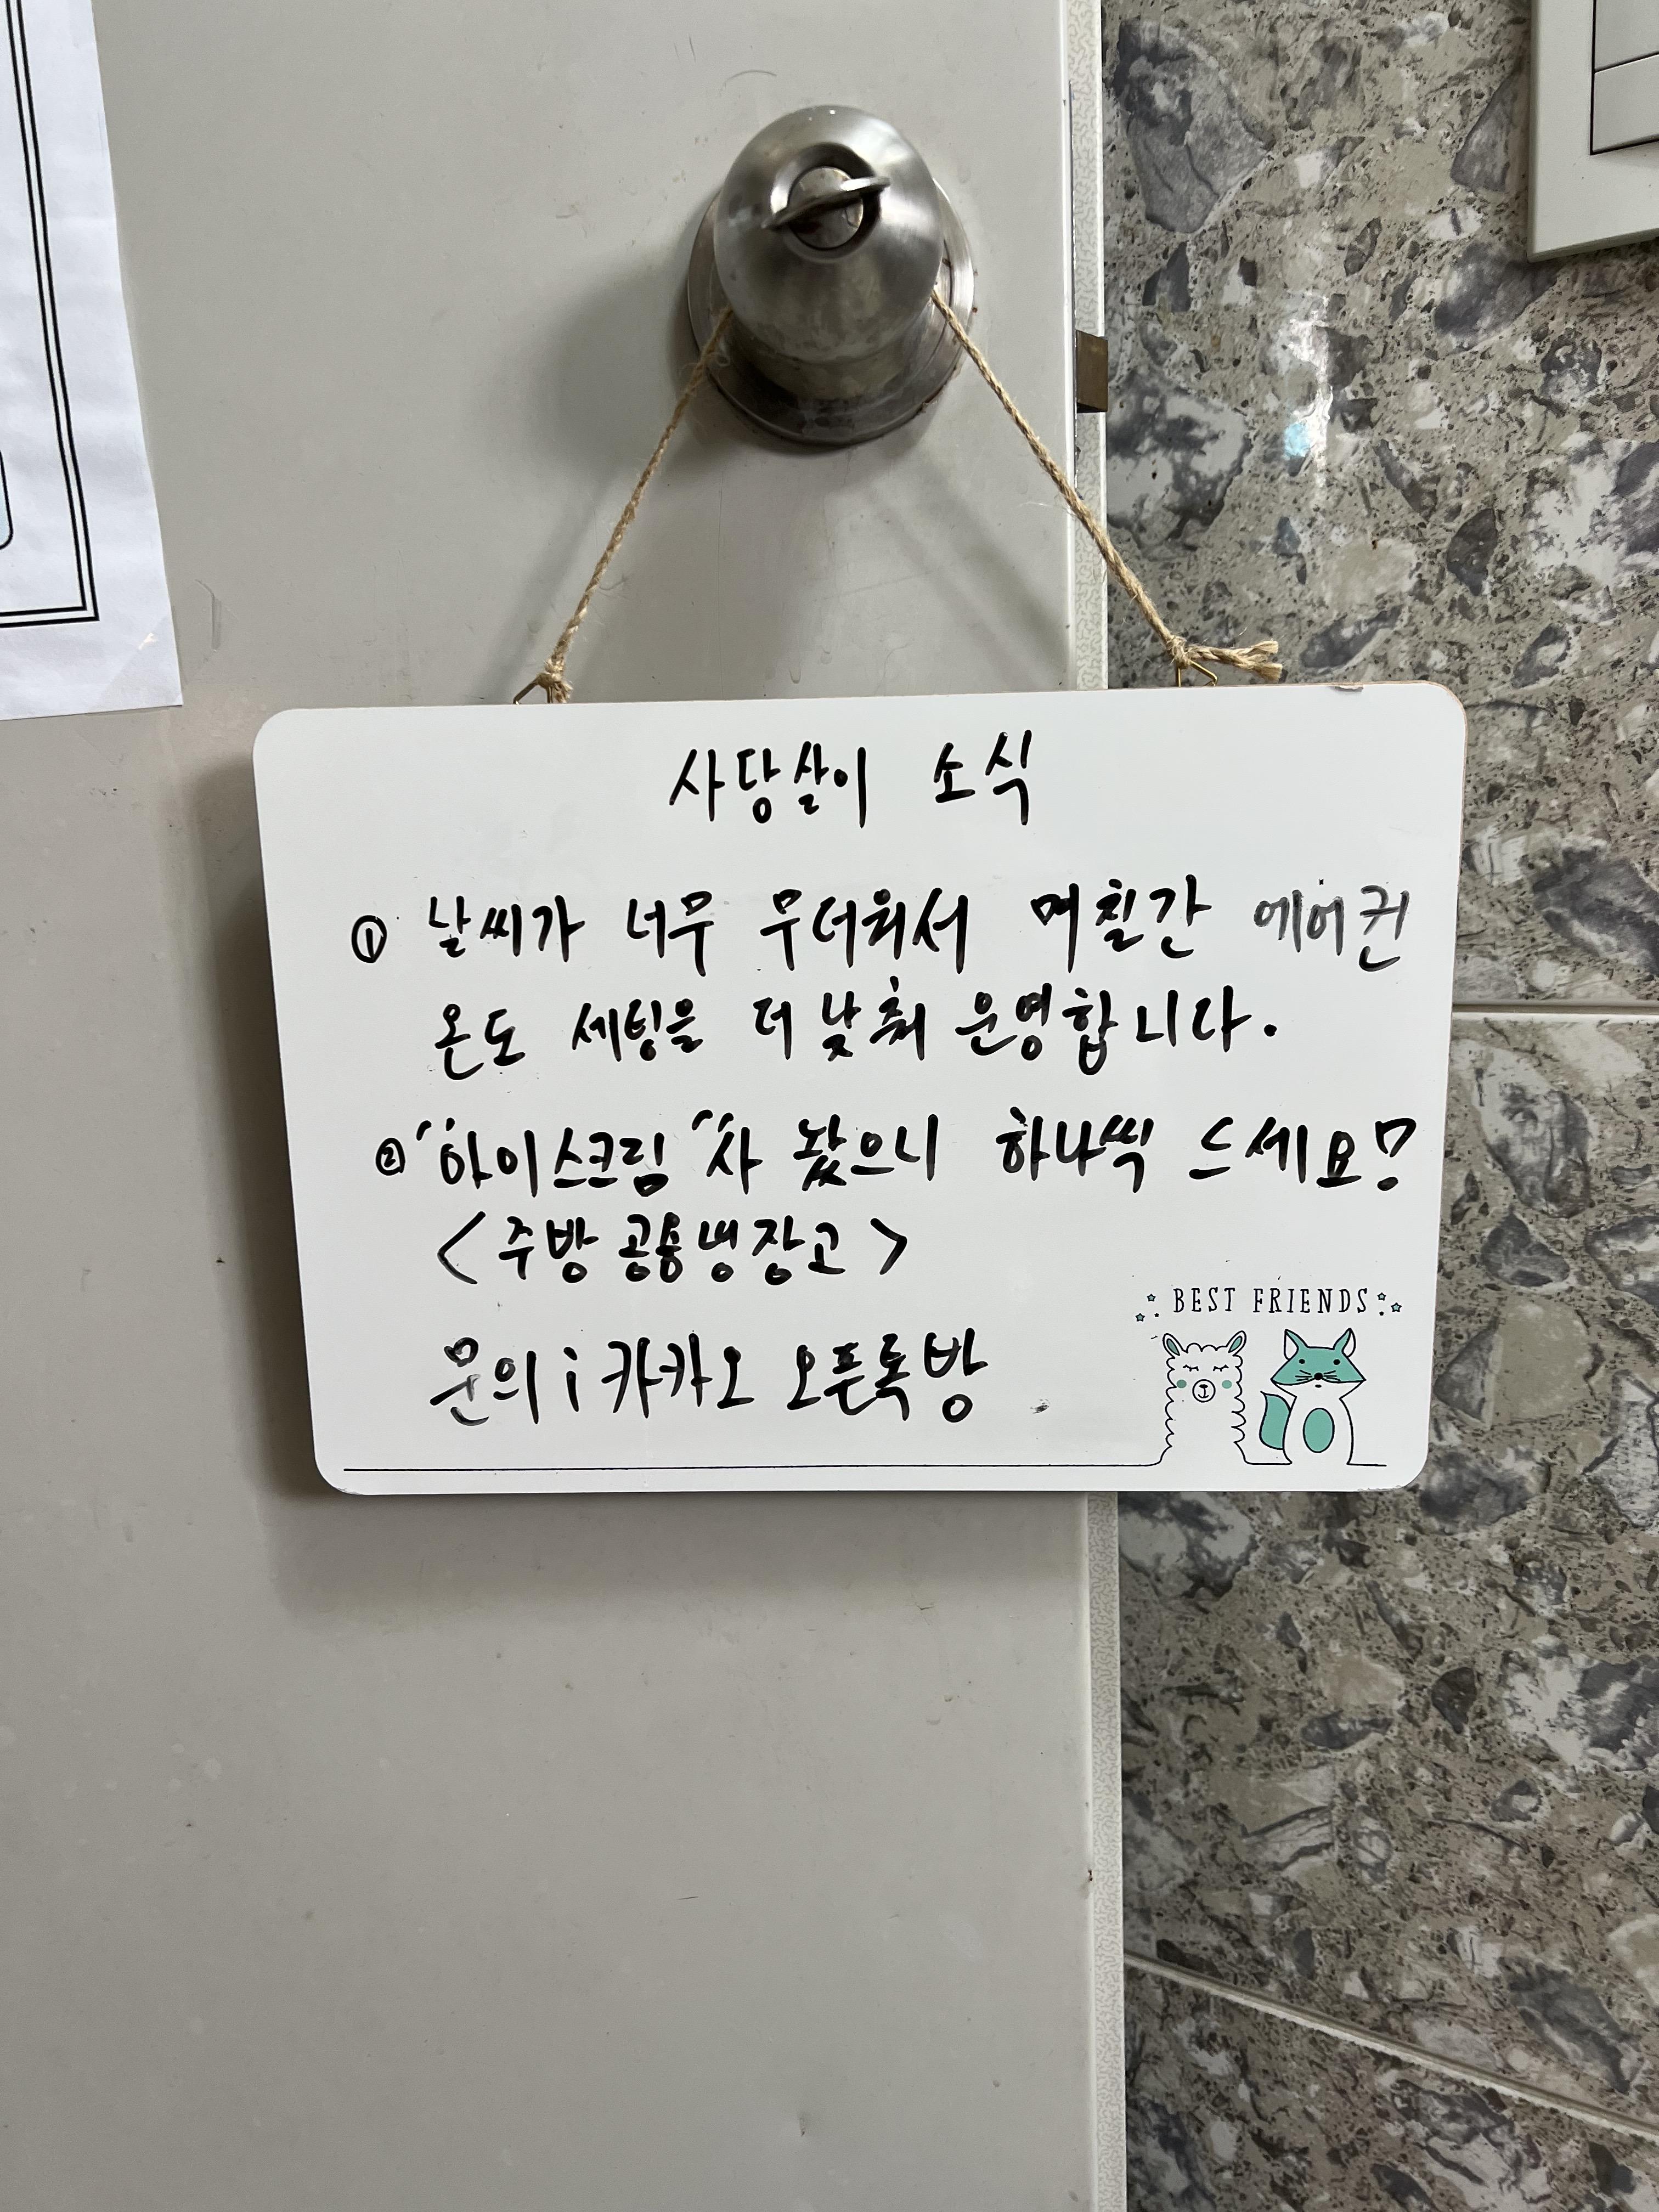 사당살이 소식
① 날씨가 너무 무더워서 며칠간 에어컨
온도 세팅을 더 낮춰 운영합니다.
② "아이스크림" 사 놨으니 하나씩 드세요!
<주방 공용냉장고>
BEST FRIENDS
문의 : 카카오 오픈톡방